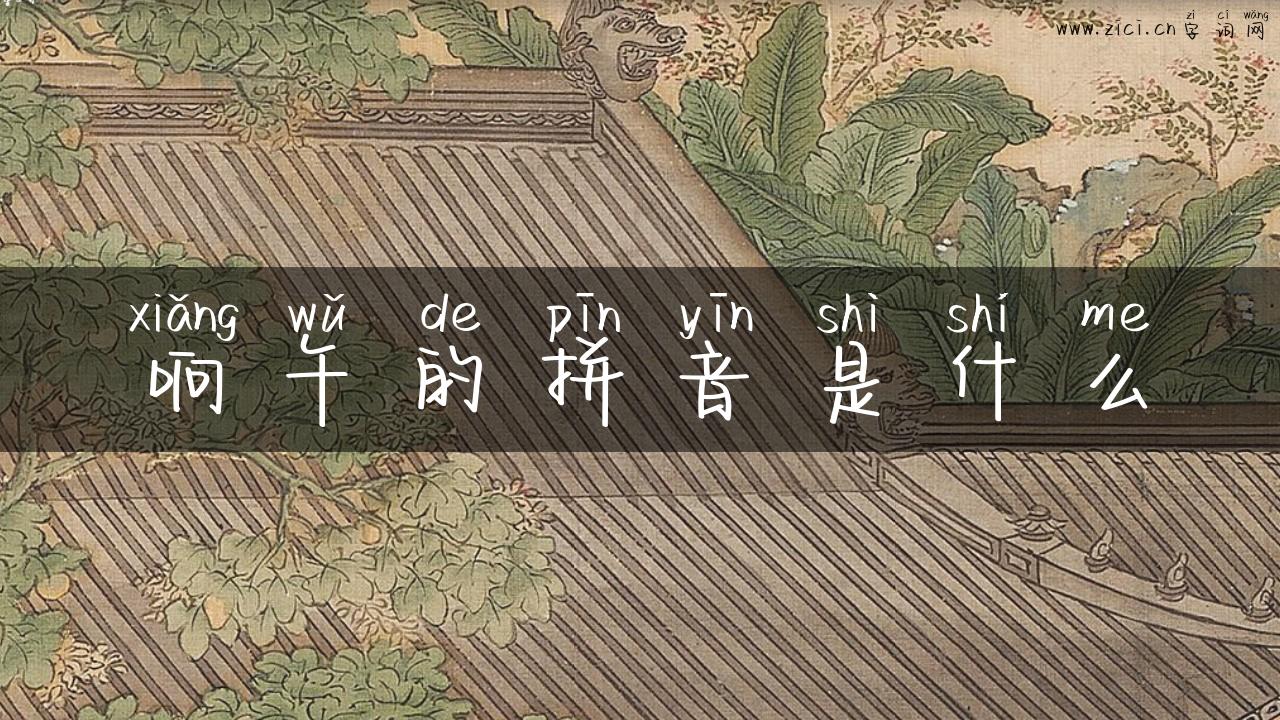 zì cí wǎng
www.zici.cn 字词网
xiǎng wǔ de pīn yīn shì shí me
响午的拼音是什么